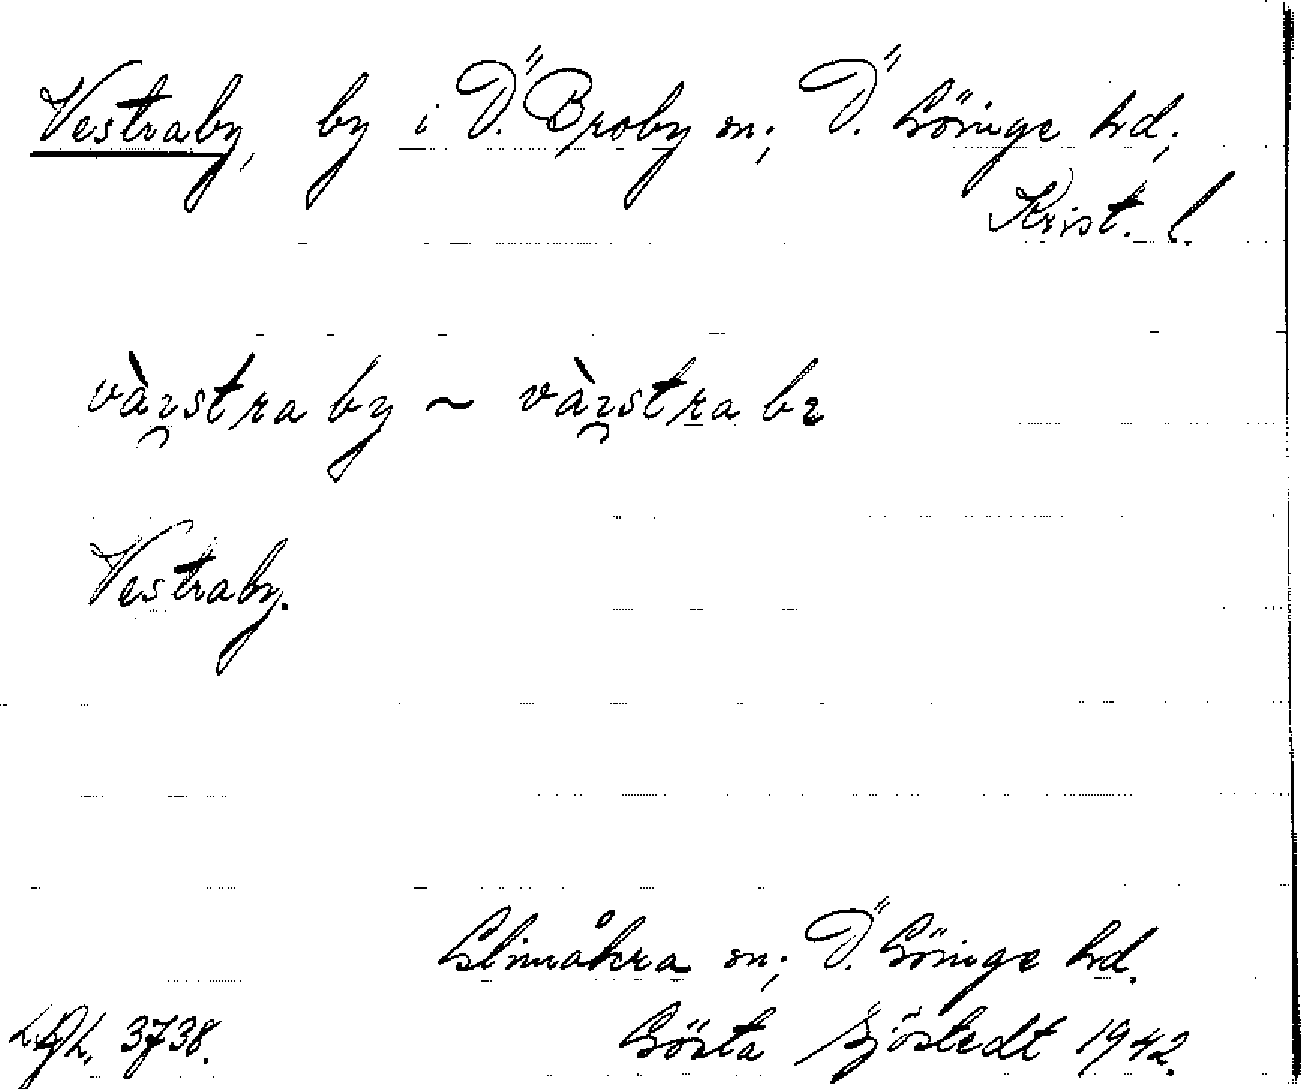 Vestraby, by i Ö. Broby sn; Ö. Göinge hd;
Krist. l
vàestra by ~ vàestra be
Vestraby.
Glimåkra sn; Ö. Göinge hd.
3738. Gösta Sjöstedt 1942.